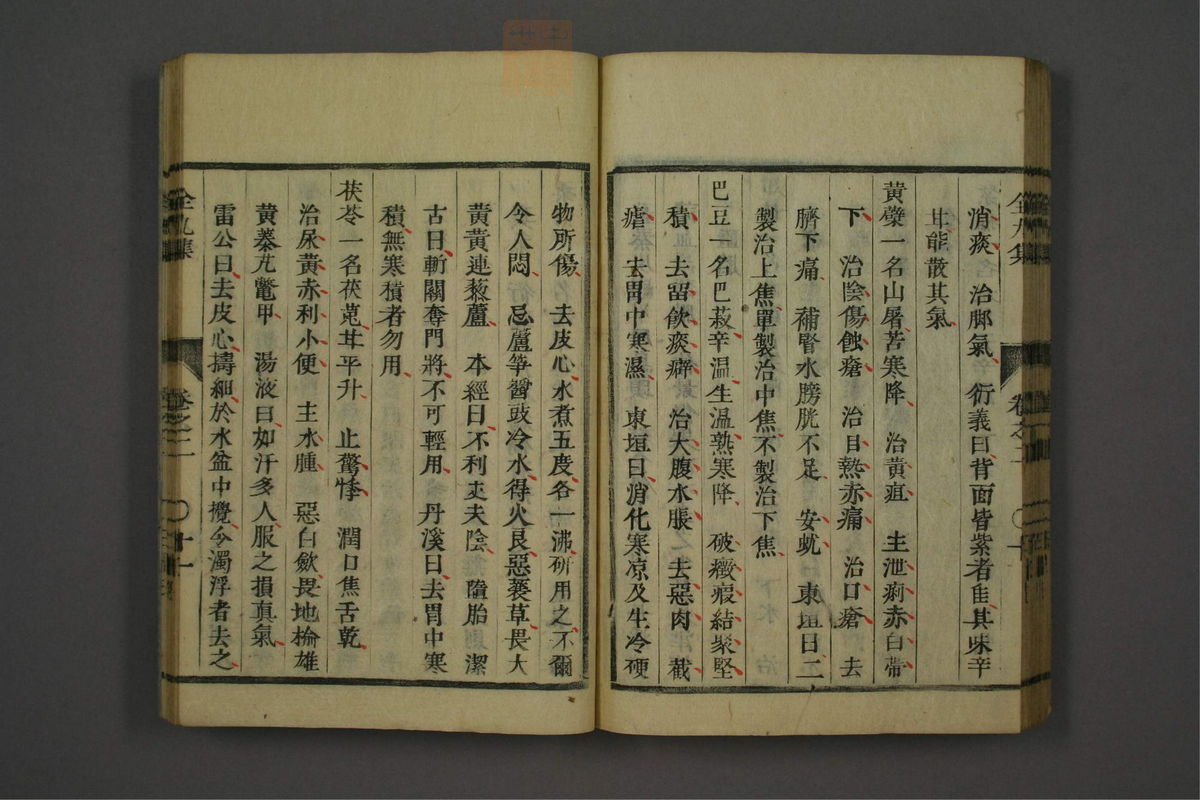 消痰　治脚氣　衍義曰背面皆紫者佳其味辛
甘能散其氣
黃蘗一名山屠苦寒降　治黃疸　主泄痢赤白帶
下　治陰傷蝕瘡　治目熱赤痛　治口瘡　去
臍下痛　補腎水膀胱不足　安蚘　東垣曰二
製治上焦單製治中焦不製治下焦
巴豆一名巴菽辛温生温熟寒降　破癥瘕結聚堅
積　去留飲痰癖　治大腹水脹　去惡肉　截
瘧　去胃中寒濕　東垣曰消化寒凉及生冷硬
全九集　卷之二　〇十
物所傷　去皮心水煮五度各一沸研用之不爾
令人悶　忌蘆笋醬豉冷水得火良惡蘘草畏大
黃黃連藜蘆　本經曰不利丈夫陰　墮胎　潔
古曰斬關奪門將不可輕用　丹溪曰去胃中寒
積無寒積者勿用
茯苓一名茯菟甘平升　止驚悸　潤口焦舌乾
治尿黃赤利小便　主水腫　惡白斂畏地榆雄
黃蓁艽鼈甲　湯液曰如汗多人服之損真氣
雷公曰去皮心擣細於水盆中攪令濁浮者去之
全九集　卷之二　〇十一